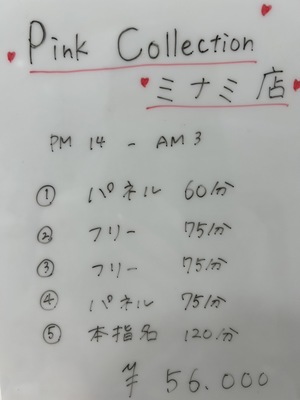 Pink Collection
ミナミ店
PM 14 - AM 3
① パネル 60分
② フリー 75分
③ フリー 75分
④ パネル 75分
⑤ 本指名 120分
¥ 56.000